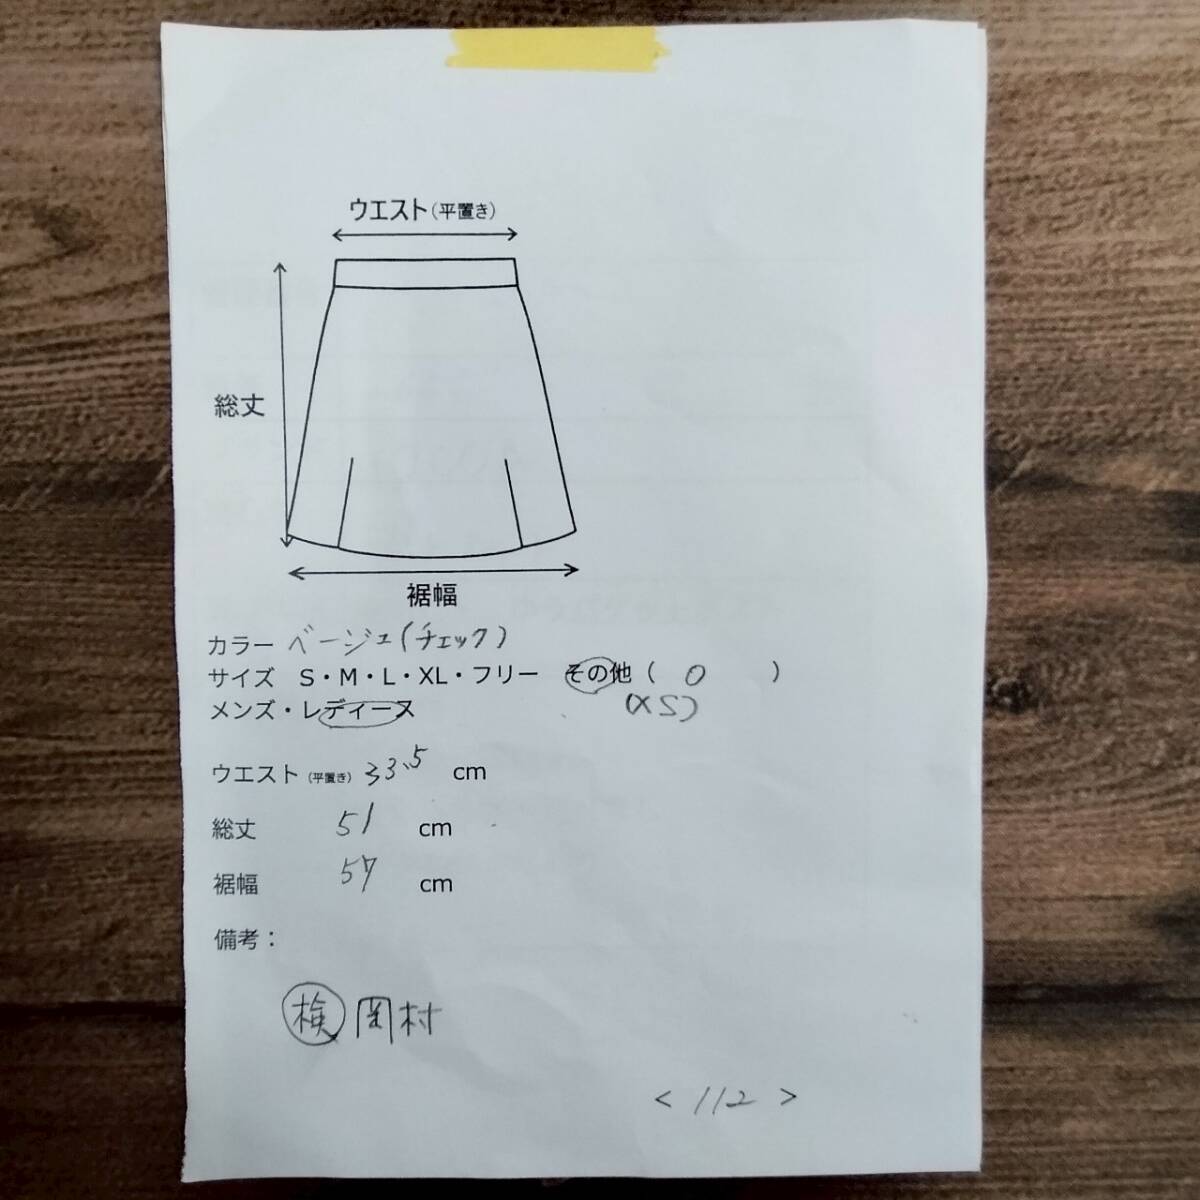 ウエスト(平置き)
総丈
裾幅
カラー ベージュ(チェック)
サイズ S・M・L・XL・フリー その他 ( 0 )
(XS)
メンズ・レディース
ウエスト (平置き) 33.5 cm
総丈 51 cm
裾幅 57 cm
備考：
検 岡村
< 112 >